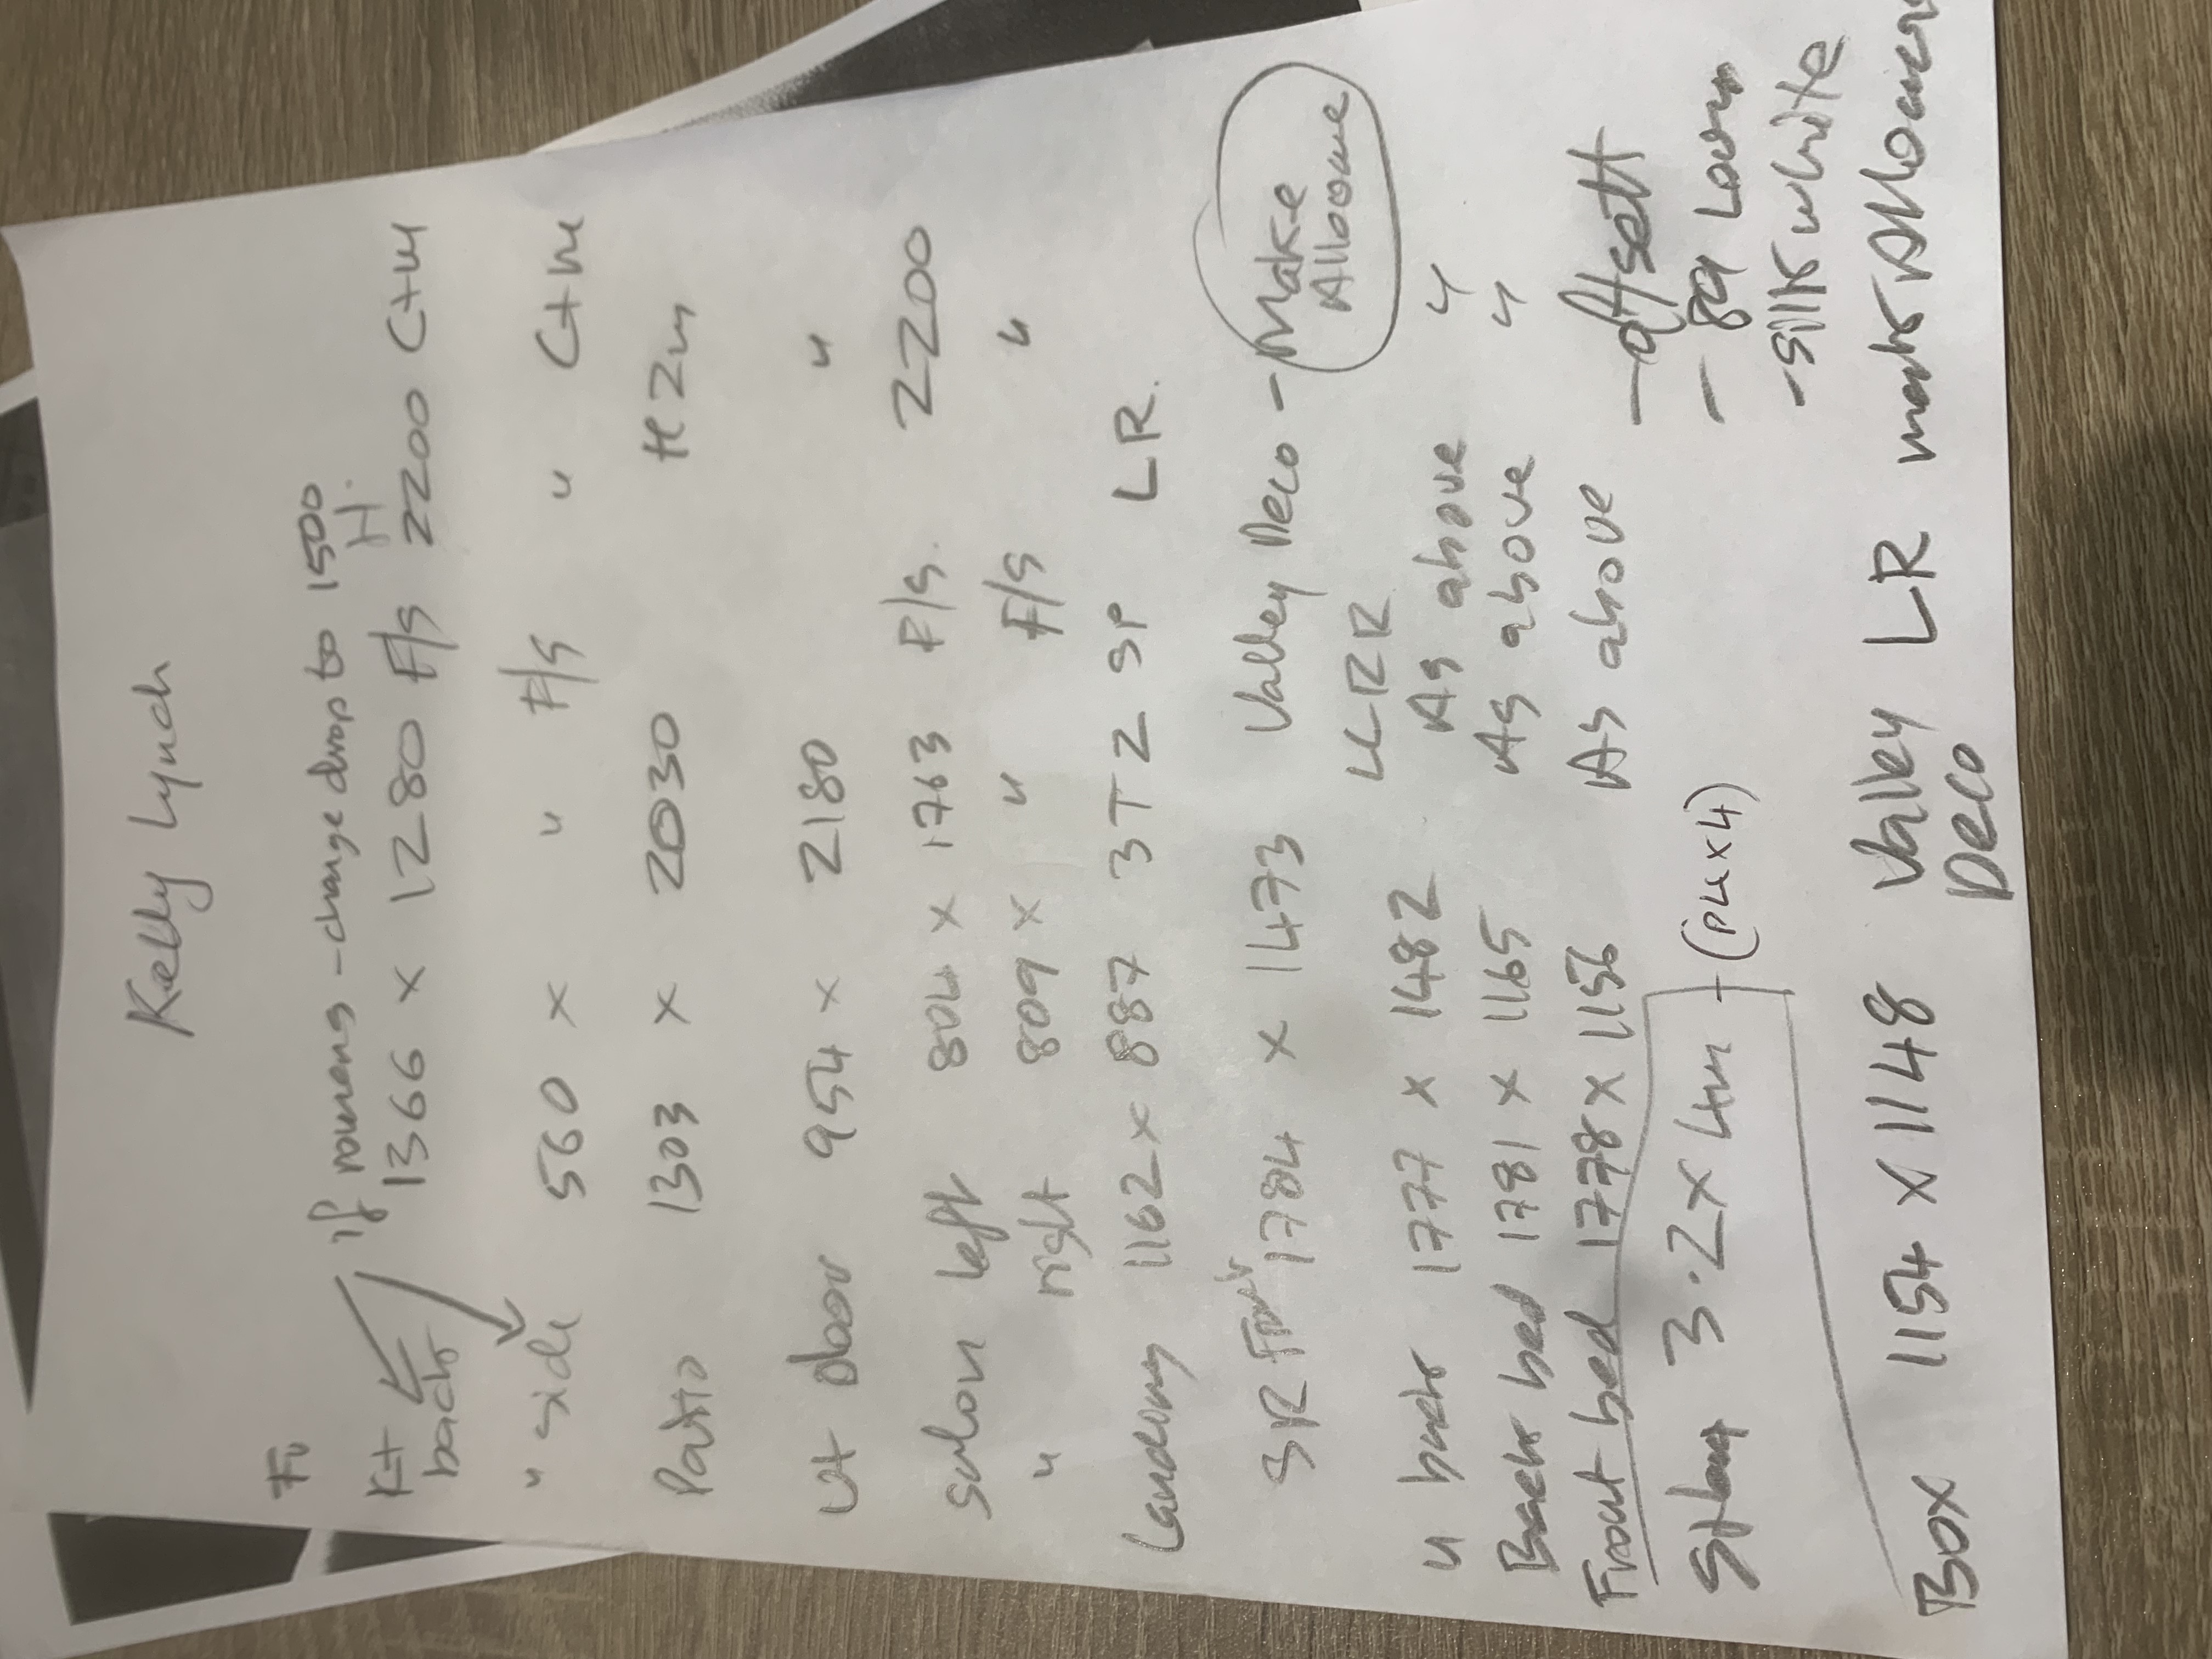 Kelly Lynch
if romans - change drop to 1500
Kit back 1366 x 1280 F/S 2200 C+M
H.
" side 560 x " F/S " C+M
Patio 1303 x 2030
Ut door 954 x 2180 "
Salon left 804 x 1763 F/S. 2200
" right 809 x " F/S "
Landing 1162 x 887 3T 2 SP LR.
SR Front 1784 x 1473 Valley Deco - Make Allowance
LLRR
" back 1777 x 1482 As above "
Back bed 1781 x 1165 As above "
Front bed 1778 x 1156 As above - offsett
3.2 x 4m - (PLL x 4) - 89 Louv
- silk white
Box 1154 x 1148 Valley Deco LR